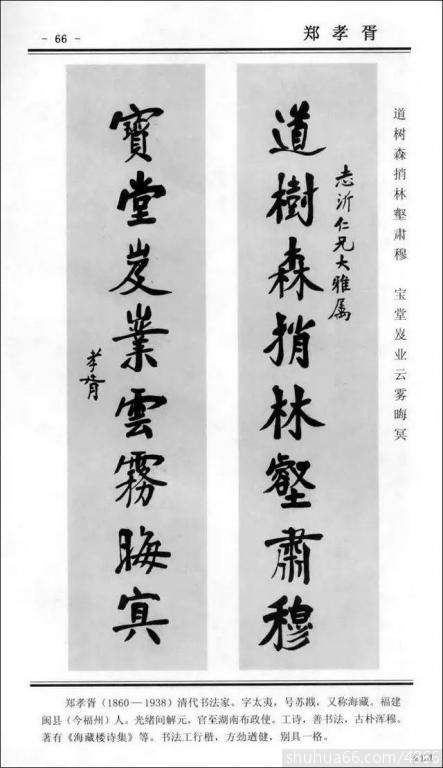 - 66 -
郑孝胥
道树森捎林壑肃穆 宝堂岌业云雾晦冥
道樹森捎林壑肅穆
志沂仁兄大雅属
寶堂岌業雲霧晦冥
孝胥
郑孝胥（1860—1938）清代书法家。字太夷，号苏戡，又称海藏。福建
闽县（今福州）人。光绪间解元，官至湖南布政使。工诗，善书法，古朴浑穆。
著有《海藏楼诗集》等。书法工行楷，方劲遒健，别具一格。
shuhua66.com/4866